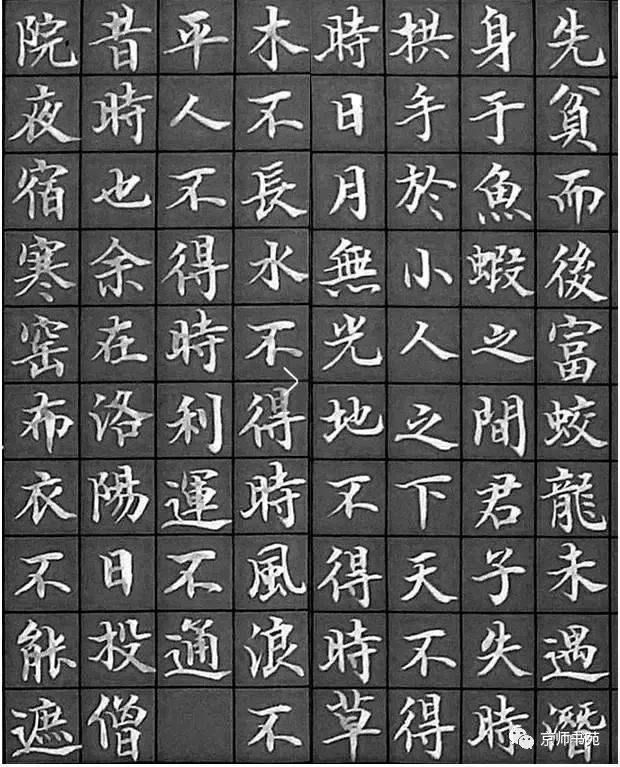 先貧而後富蛟龍未遇潛
身于魚蝦之間君子失時
拱手於小人之下天不得
時日月無光地不得時草
木不長水不得時風浪不
平人不得時利運不通
昔時也余在洛陽日投僧
院夜宿寒窑布衣不能遮
京师书苑